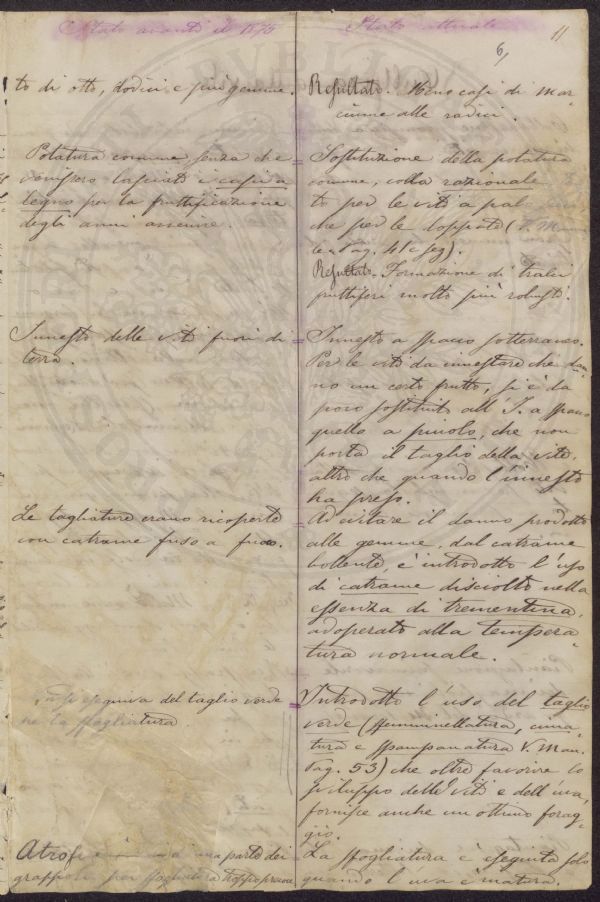 Stato avanti il 1876
Stato attuale
6,
11
to di otto, dodici e più gemme.
Potatura comune senza che
venissero lasciati i capi a
legno per la fruttificazione
degli anni avvenire.
Innesto delle viti fuori di
terra.
Le tagliature erano ricoperte
con catrame fuso a fuoco.
eseguiva del taglio verde
ne la sfogliatura
Atrofi una parte dei
grappoli per sfogliatura troppo precoce
Resultato. Meno casi di mar-
ciume alle radici.
= Sostituzione della potatura
comune, colla razionale
to per le viti a pal
che per le doppate (V.
Pag. 41 e seg).
Resultato = Formazione di tralci
fruttiferi molto più robusti.
= Innesto a spacco sotterraneo.
Per le viti da innestare che dan-
no un certo frutto, si è da
poco sostituito all'I. a spacco
quello a piuolo, che non
porta il taglio della vite,
altro che quando l'innesto
ha preso.
= Ad evitare il danno prodotto
alle gemme, dal catrame
bollente, è introdotto l'uso
di catrame disciolto nella
essenza di trementina,
adoperato alla tempera-
tura normale.
= Introdotto l'uso del taglio
verde (sfemminellatura, cima-
tura e spampanatura V. Man.
Pag. 53) che oltre favorire lo
sviluppo delle viti e dell'uva,
fornisce anche un ottimo forag-
gio.
La sfogliatura è eseguita solo
quando l'uva è matura.